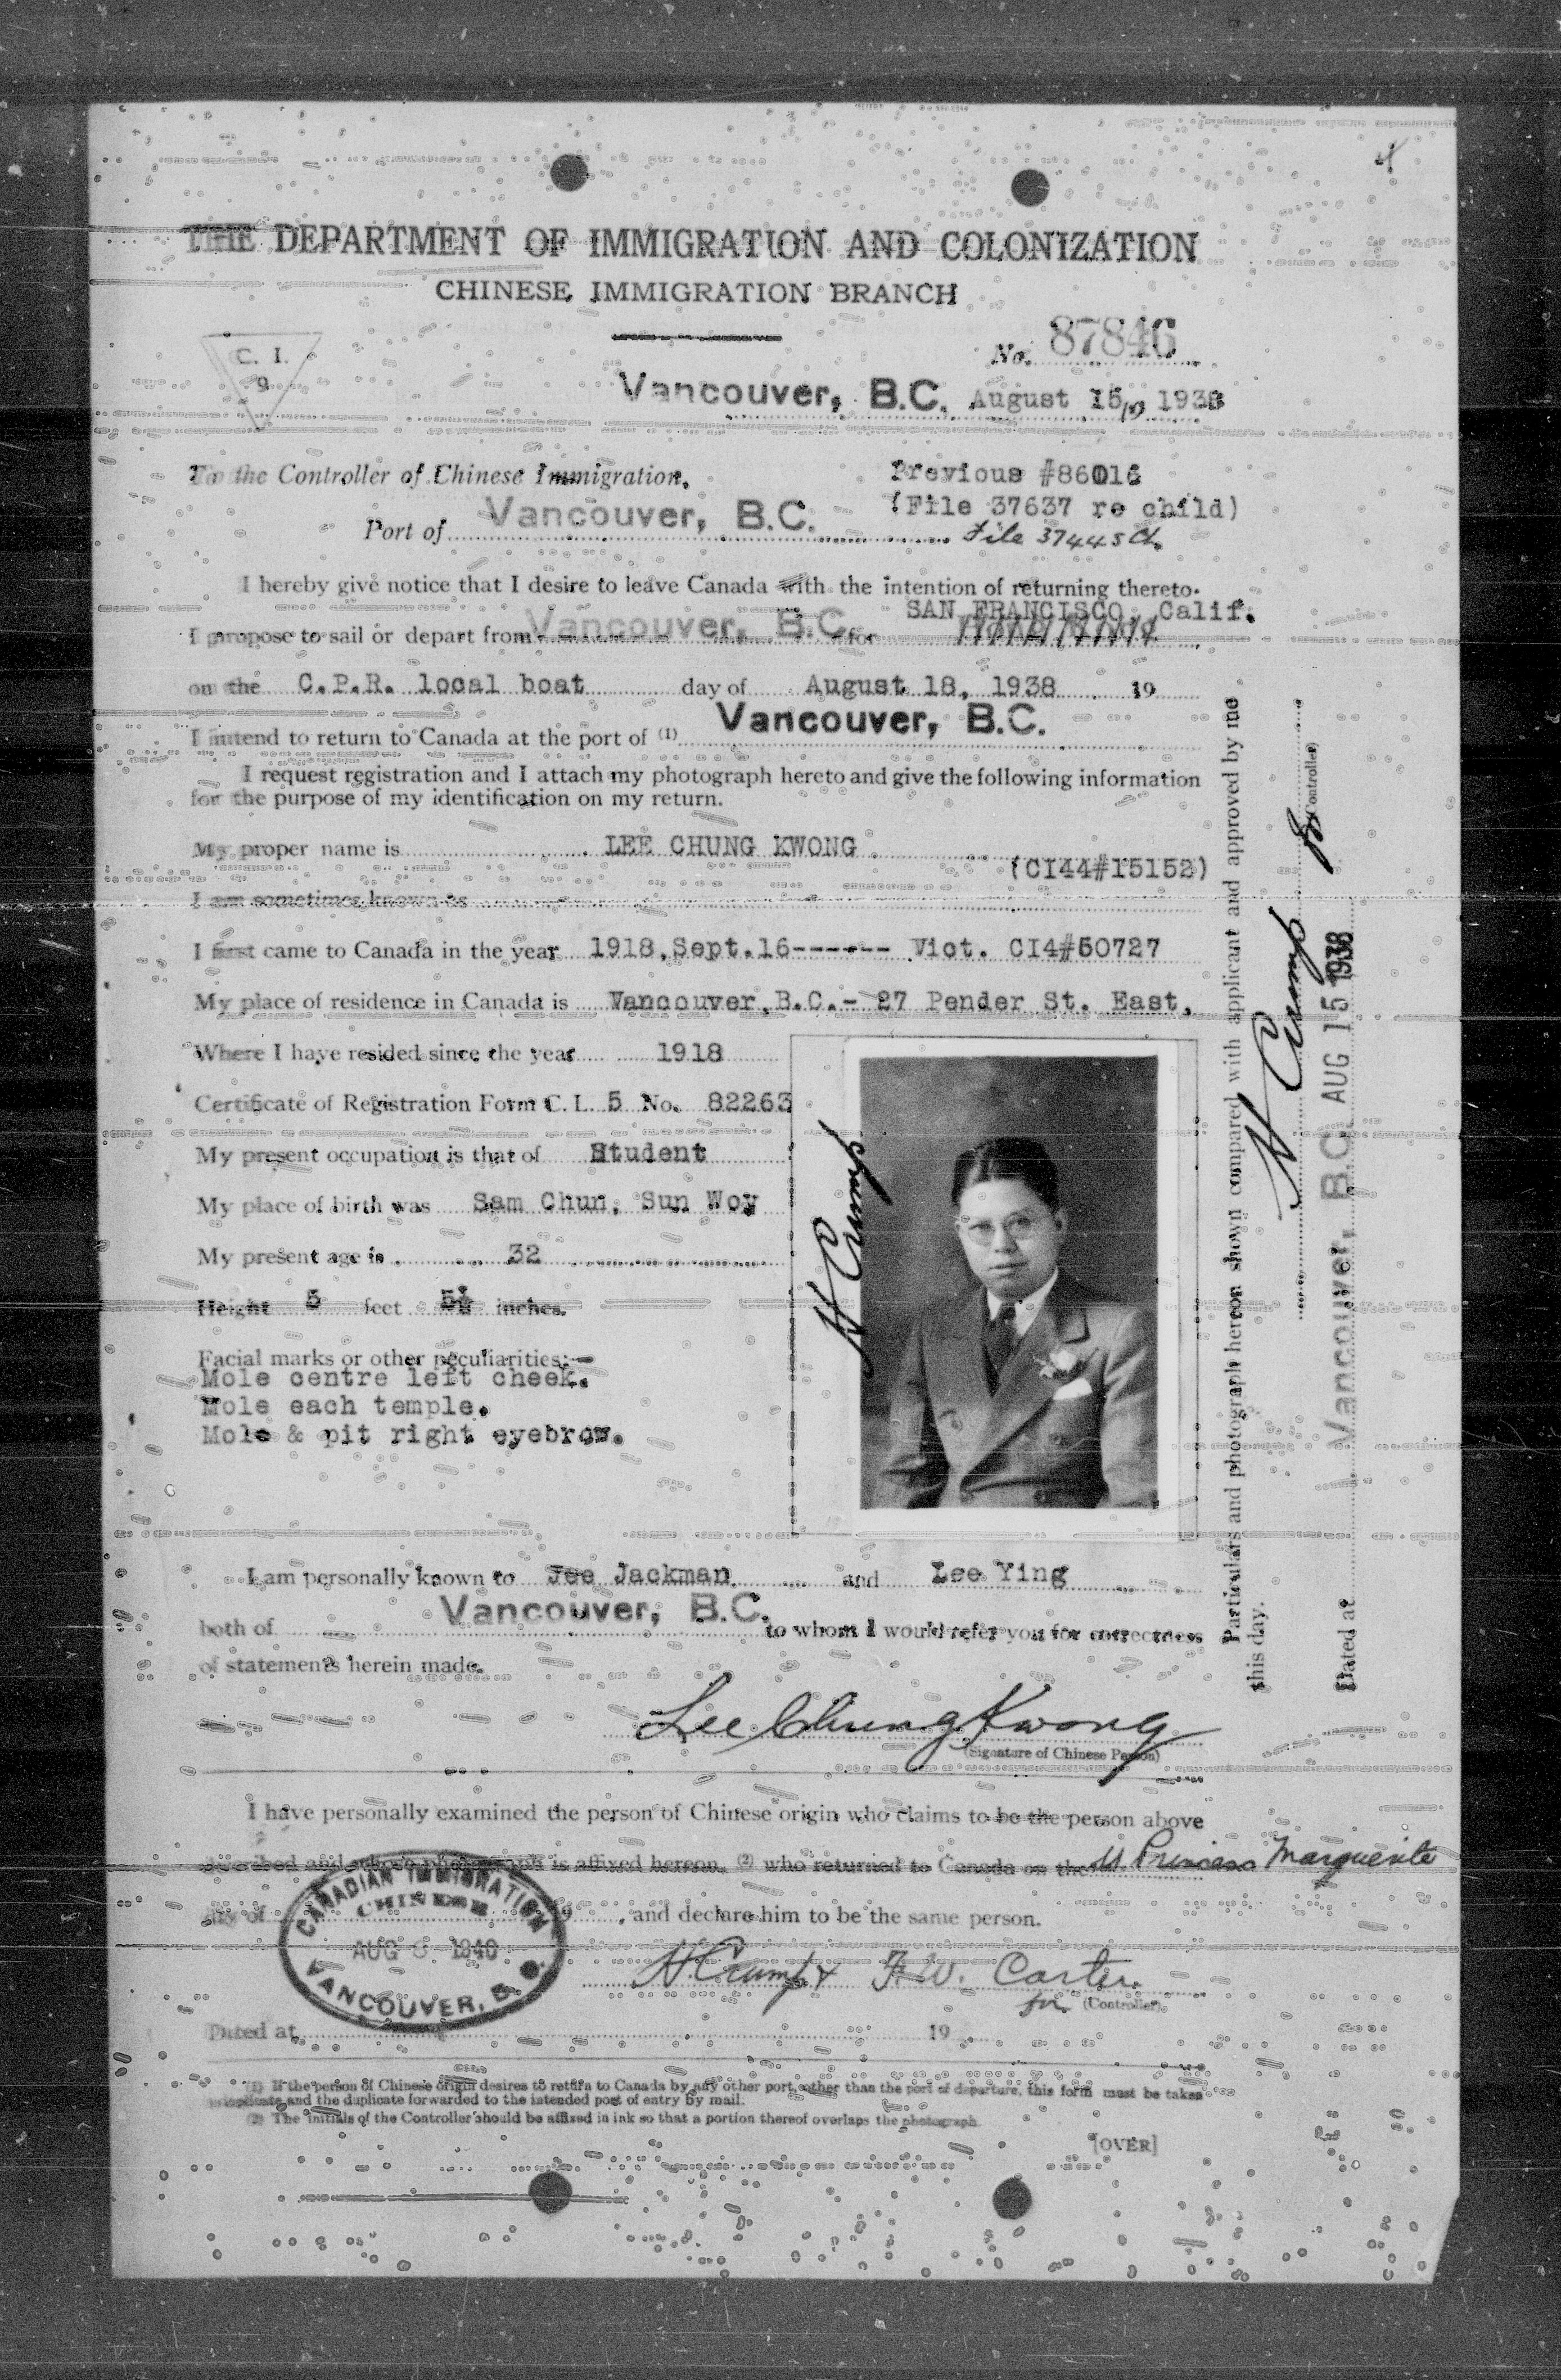 THE DEPARTMENT OF IMMIGRATION AND COLONIZATION
CHINESE IMMIGRATION BRANCH
C. I.
9
No. 87846
Vancouver, B.C. August 15, 1938
To the Controller of Chinese Immigration,
Previous #86016
(File 37637 re child)
Port of Vancouver, B.C.
File 37445 Ch.
I hereby give notice that I desire to leave Canada with the intention of returning thereto.
SAN FRANCISCO, Calif.
I propose to sail or depart from Vancouver, B.C. for
on the C.P.R. local boat day of August 18, 1938 19
I intend to return to Canada at the port of (1) Vancouver, B.C.
I request registration and I attach my photograph hereto and give the following information
for the purpose of my identification on my return.
My proper name is LEE CHUNG KWONG
(CI44#15152)
I am sometimes known as
I first came to Canada in the year 1918, Sept.16------ Vict. CI4#50727
My place of residence in Canada is Vancouver, B.C.- 27 Pender St. East,
Where I have resided since the year 1918
Certificate of Registration Form C. I. 5 No. 82263
My present occupation is that of Student
My place of birth was Sam Chun, Sun Woy
My present age is 32
Height 5 feet 5½ inches.
Facial marks or other peculiarities:—
Mole centre left cheek.
Mole each temple.
Mole & pit right eyebrow.
H Crump
I am personally known to Jee Jackman and Lee Ying
both of Vancouver, B.C. to whom I would refer you for correctness
of statements herein made.
Lee Chung Kwong
(Signature of Chinese Person)
I have personally examined the person of Chinese origin who claims to be the person above
described and whose photograph is affixed hereon, (2) who returned to Canada on the SS Princess Marguerite
day of 19 , and declare him to be the same person.
CANADIAN IMMIGRATION
CHINESE
AUG 6 1940
VANCOUVER, B. C.
H Crump F. W. Carter
for (Controller)
Dated at 19
(1) If the person of Chinese origin desires to return to Canada by any other port, other than the port of departure, this form must be taken
in duplicate and the duplicate forwarded to the intended port of entry by mail.
(2) The initials of the Controller should be affixed in ink so that a portion thereof overlaps the photograph.
[OVER]
Particulars and photograph hereon shown compared with applicant and approved by me
this day.
H Crump for
(Controller)
Dated at Vancouver, B.C. AUG 15 1938